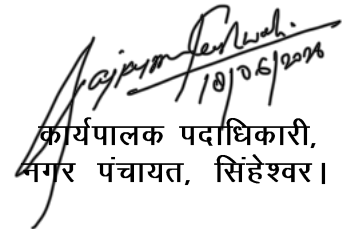 18/06/2026
कार्यपालक पदाधिकारी,
नगर पंचायत, सिंहेश्वर।